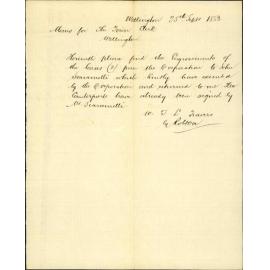 Wellington 25th Sept 1883
Memo for the Town Clerk
Wellington
Herewith please find the Engrossments of
the leases (2) from the Corporation to John
which kindly have executed
by the Corporation and returned to me. The
Counterparts have already been signed by
Mr
W. T. L. Travers
by